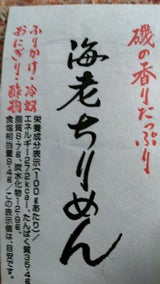 磯の香りたっぷり
海老ちりめん
ふりかけ・冷奴
おにぎり・酢物
栄養成分表示(100gあたり)
エネルギー272kcal、たんぱく質35.4g
脂質8.1g、炭水化物12.9g、
食塩相当量9.4g/この表示値は、目安です。